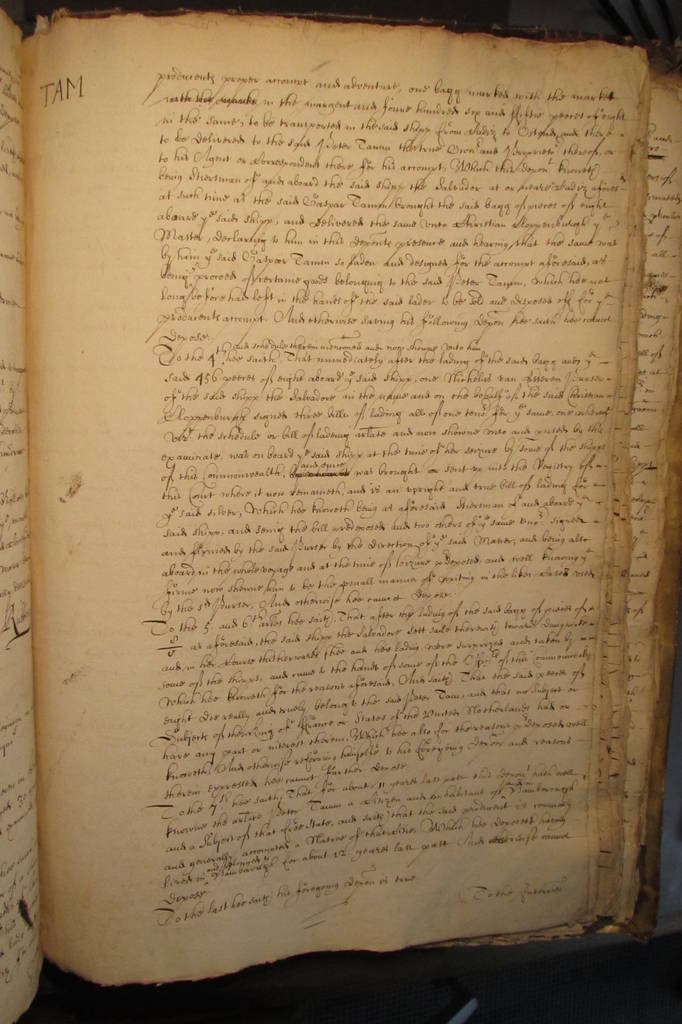 TAM
producents proper accompt and adventure, one bagg marked with the marke
in the margent and foure hundred six and fiftie peeces of eight
in the same, to be transported in the said shipp from Cadiz to and there
to be delivered to the said Peter Tamm the true Owner and Proprietor thereof, or
to his Agent or Correspondent there for his accompt, Which this deponent knoweth
being Stiersman of and aboard the said shipp the Salvador at or neare Cadiz aforesaid
at such time as the said Caspar Tamm brought the said bagg of peeces of eight
aboard ye said shipp, and delivered the same unto Christian Cloppenburgh ye
Master, declaring to him in this deponents presence and hearing, that the same was
by him ye said Caspar Tamm so laden and designed for the accompt aforesaid, as
being ye proceed of certaine goods belonging to the said Peter Tamm, which hee not
long before had left in the hands of the said lader to be sold and disposed of for ye
producents accompt. And otherwise saving his following deposn hee saith hee cannot
depose.
and schedule therein mentioned and now showne unto him
To the 4th hee saith, That immediately after the lading of the said bagg and ye
said 456 peeces of eight aboard ye said shipp, one Nicholas van Purser
of the said shipp the Salvadore in the name and on the behalfe of the said Christian
Cloppenburgh signed three bills of lading all of one tenor for ye same, one whereof
vizt. the schedule or bill of lading arlate and now showne unto and perused by this
examinate, was on board ye said shipp at the time of her seizure by some of the shipps
of this Commonwealth, and since was brought or sent up into the Registry of
this Court where it now remaineth, and is an upright and true bill of lading for
ye said silver, Which hee knoweth being as aforesaid Stiersman of and aboard ye
said shipp, and seeing the bill predeposed and two others of ye same tenor signed
and firmed by the said Purser by the direction of ye said Master, and being also
aboard in the whole voyage and at the time of seizure predeposed, and well knowing ye
firme now shewne him to be the usuall manner of writing in the like cases used
by the sd Purser, And otherwise hee cannot depose.
To the 5 and 6th arles hee saith, That after the lading of the said bagg of peeces of
8/8 as aforesaid, the said shipp the Salvadore sett saile therewith towards
and in her Course thitherwards shee and her lading were surprized and taken by
some of the shipps, and came to the hands of some of the Officers of this Commonwealth
Which hee knoweth for the reasons aforesaid, And saith That the said peeces of
eight did really and truely belong to the said Peter Tam, and that no Subject or
Subjects of the King of France or States of the United Netherlands had or
have any part or interest therein, Which hee also for the reasons predeposed well
knoweth, And otherwise referring himselfe to his foregoing deposn and reasons
therein expressed hee cannot further depose
To the 7th hee saith, That for about 11 yeares last past this deponent hath well
knowne the arlate Peter Tamm a Citizen and inhabitant of Hamborough
and a subject of that free State, and saith that the said producent is commonly
and generally accompted a Native of that Citie, Which hee deposeth having
lived in and belonged to Hamborough for about 12 yeares last past And otherwise cannot
depose.
To the last hee saith his foregoing deposn is true.
To the Interries